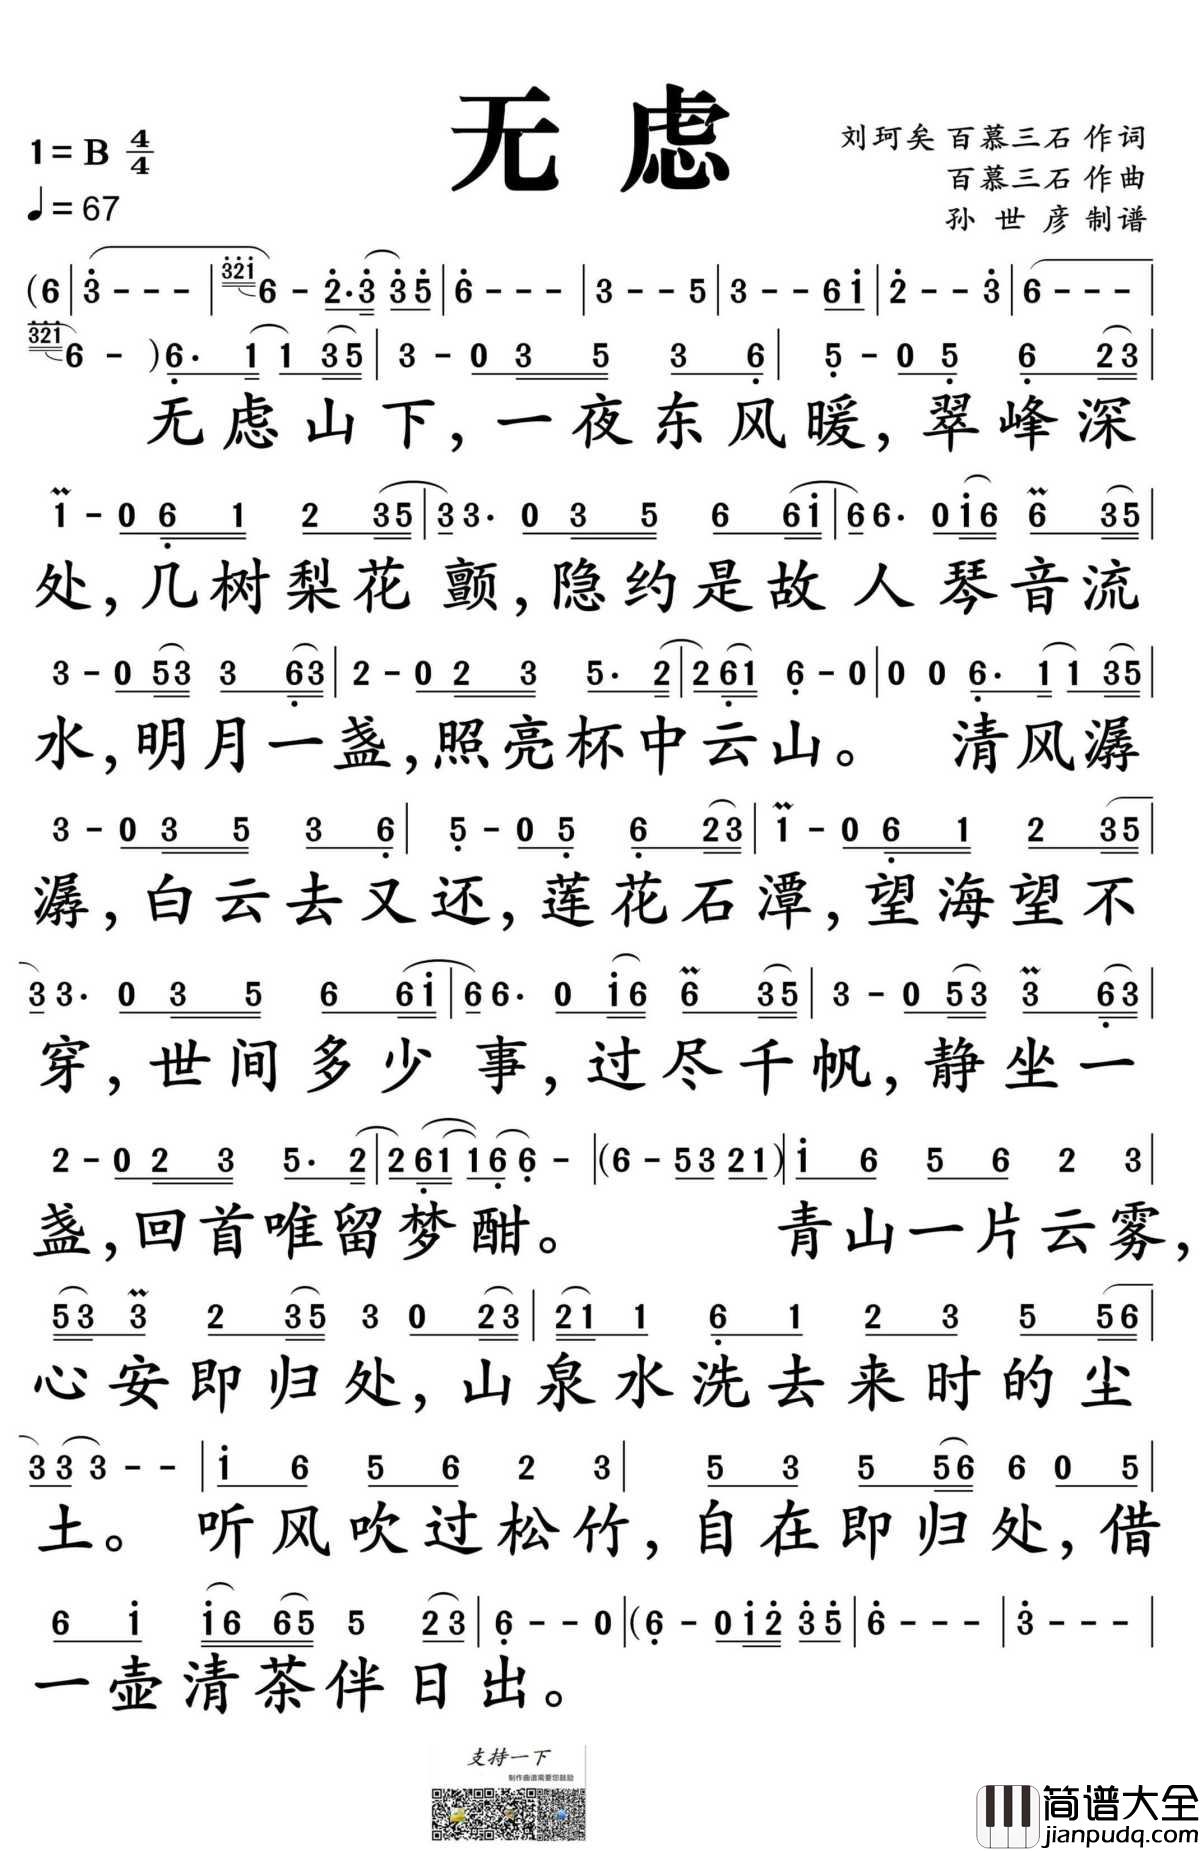 无虑
1=B 4/4
♩=67
刘珂矣 百慕三石 作词
百慕三石 作曲
孙世彦 制谱
(6|3---|321 6-2·3 35|6---|3--5|3--61|2--3|6---|
321 6-)6·1 1 35|3-03 5 3 6|5-05 6 23|
无虑山下,一夜东风暖,翠峰深
1-06 1 2 35|3 3·03 5 6 61|6 6·016 6 35|
处,几树梨花颤,隐约是故人琴音流
3-053 3 63|2-02 3 5·2|2 61 6-0|0 0 6·1 1 35|
水,明月一盏,照亮杯中云山。 清风潺
3-03 5 3 6|5-05 6 23|1-06 1 2 35|
潺,白云去又还,莲花石潭,望海望不
3 3·03 5 6 61|6 6·016 6 35|3-053 3 63|
穿,世间多少事,过尽千帆,静坐一
2-02 3 5·2|2 61 16 6-|(6-53 21)|1 6 5 6 2 3|
盏,回首唯留梦酣。 青山一片云雾,
53 3 2 35 3 0 23|21 1 6 1 2 3 5 56|
心安即归处,山泉水洗去来时的尘
3 3 3--|1 6 5 6 2 3|5 3 5 56 6 0 5|
土。 听风吹过松竹,自在即归处,借
6 1 16 65 5 23|6--0|(6-012 35|6---|3---|
一壶清茶伴日出。
支持一下
制作曲谱需要您鼓励
简谱大全
jianpudq.com